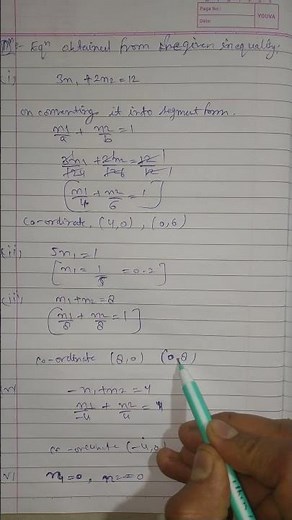 Page No.:
Date:
YOUVA
Eqn obtained from the given inequality.
3n1 + 2n2 = 12
on converting it into segment form.
n1/a + n2/b = 1
3n1/12 4 + 2n2/12 6 = 12/12 1
[n1/4 + n2/6 = 1]
co-ordinate, (4,0), (0,6)
(ii) 5n1 = 1
[n1 = 1/5 = 0.2]
(iii) n1 + n2 = 8
[n1/8 + n2/8 = 1]
co-ordinate (8,0) (0,8)
-n1 + n2 = 4
n1/-4 + n2/4 =
co-ordinate (-4,0)
n1 = 0, n2 = 0